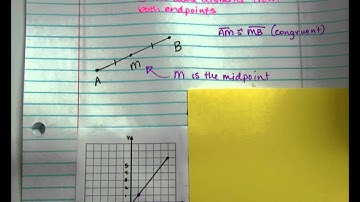 both endpoints
AM ≅ MB (congruent)
B
M
A
M is the midpoint